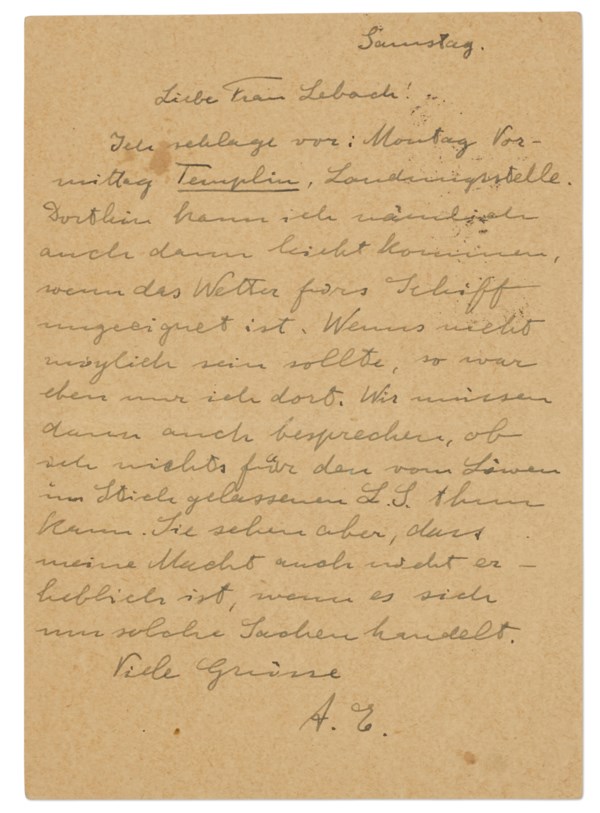 Samstag.
Liebe Frau Lebach!
Ich schlage vor: Montag Vor-
mittag Templin, Landungsstelle.
Dorthin kann ich nämlich
auch dann leicht kommen,
wenn das Wetter fürs Schiff
ungeeignet ist. Wenns nicht
möglich sein sollte, so war
eben nur ich dort. Wir müssen
dann auch besprechen, ob
ich nichts für den vom Löwen
im Stich gelassenen L. S. thun
kann. Sie sehen aber, dass
meine Macht auch nicht er-
heblich ist, wenn es sich
um solche Sachen handelt.
Viele Grüsse
A. E.